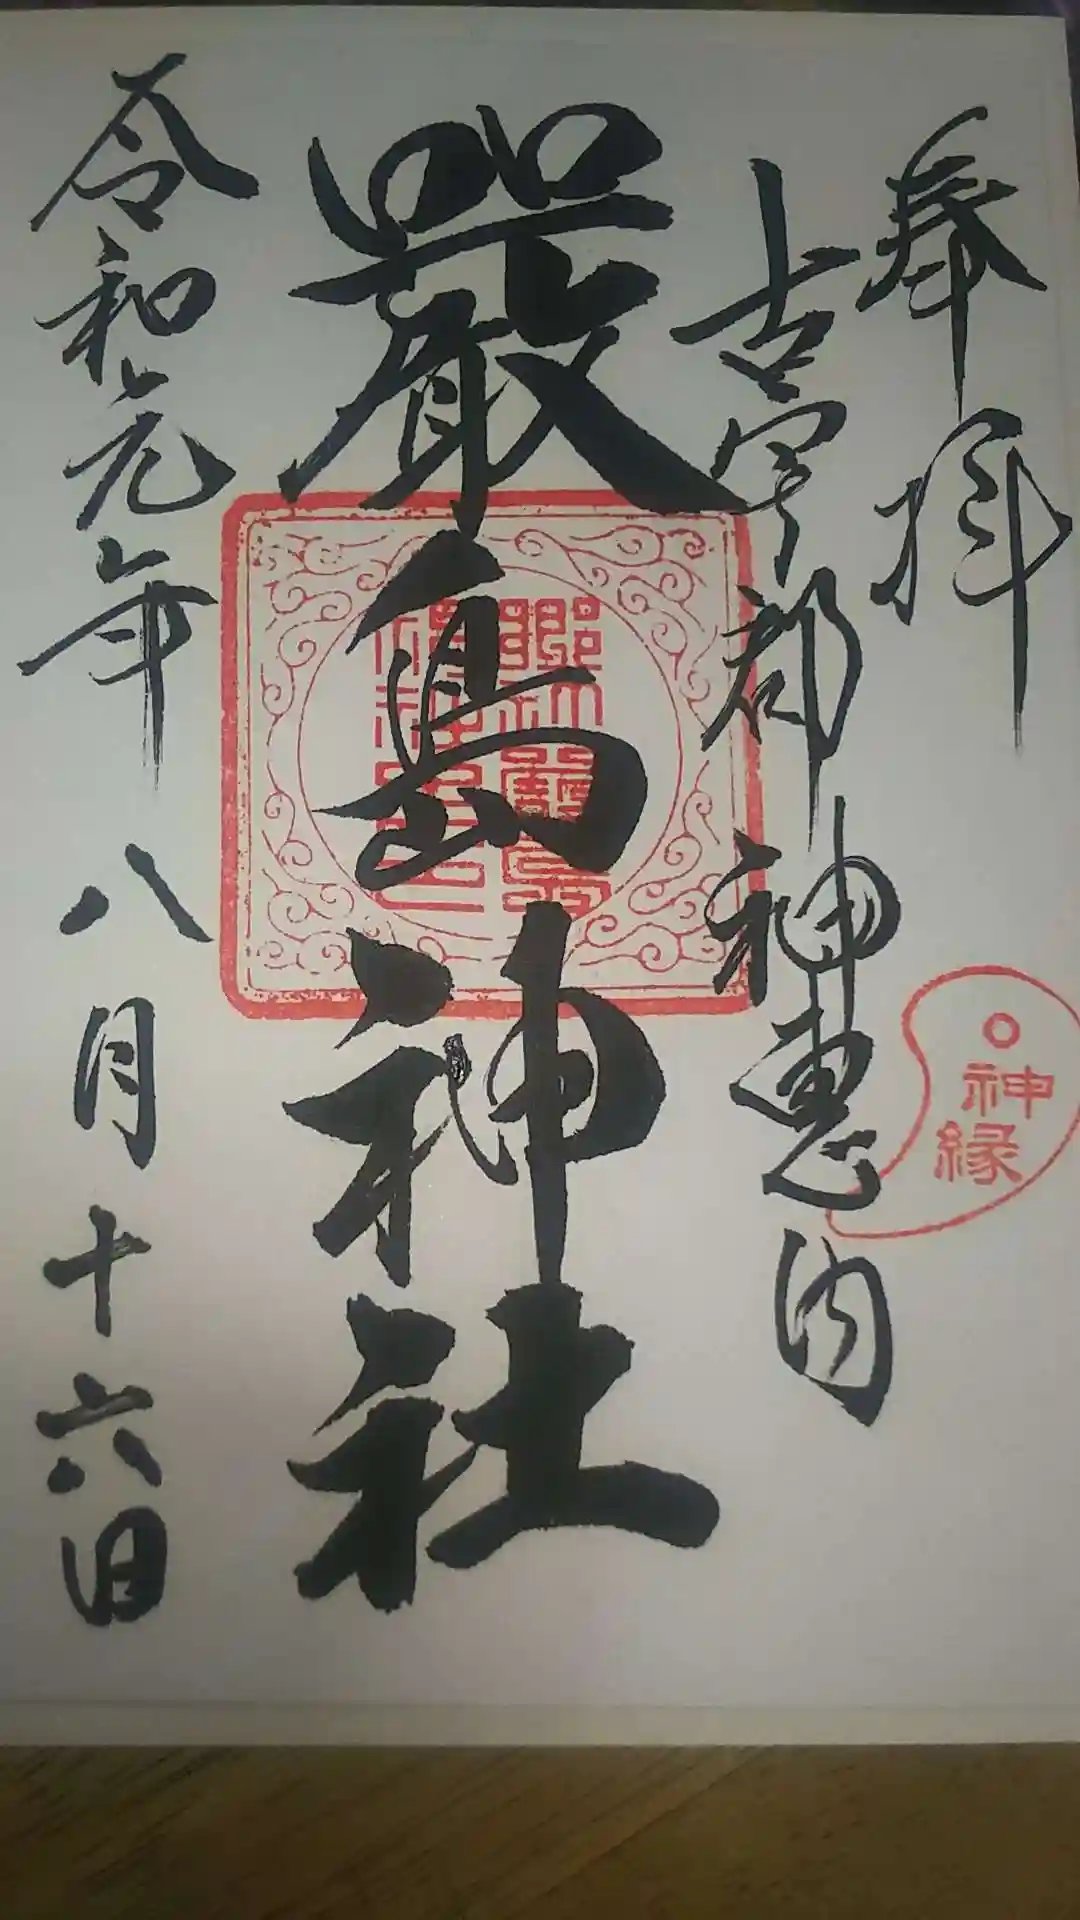 奉拝
古宇部神恵内
嚴島神社
令和元年八月十六日
神
縁